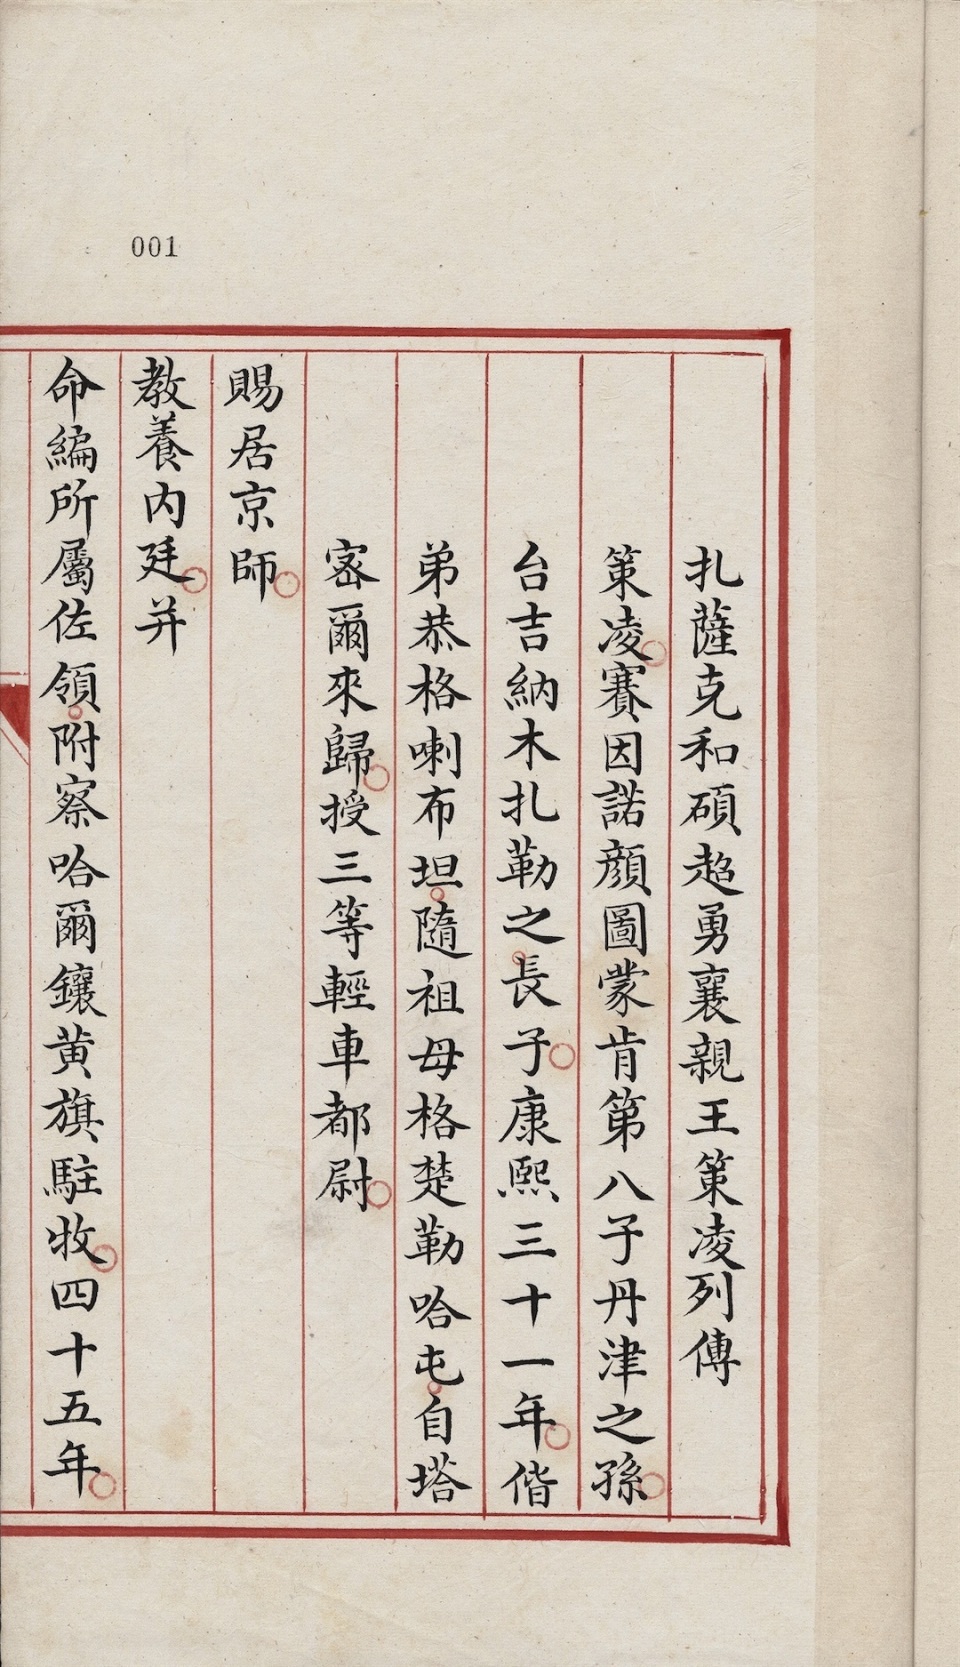 001
扎薩克和碩超勇襄親王策凌列傳
策凌賽因諾顏圖蒙肯第八子丹津之孫
台吉納木扎勒之長子康熙三十一年偕
弟恭格喇布坦隨祖母格楚勒哈屯自塔
密爾來歸授三等輕車都尉
賜居京師
教養內廷并
命編所屬佐領附察哈爾鑲黃旗駐牧四十五年